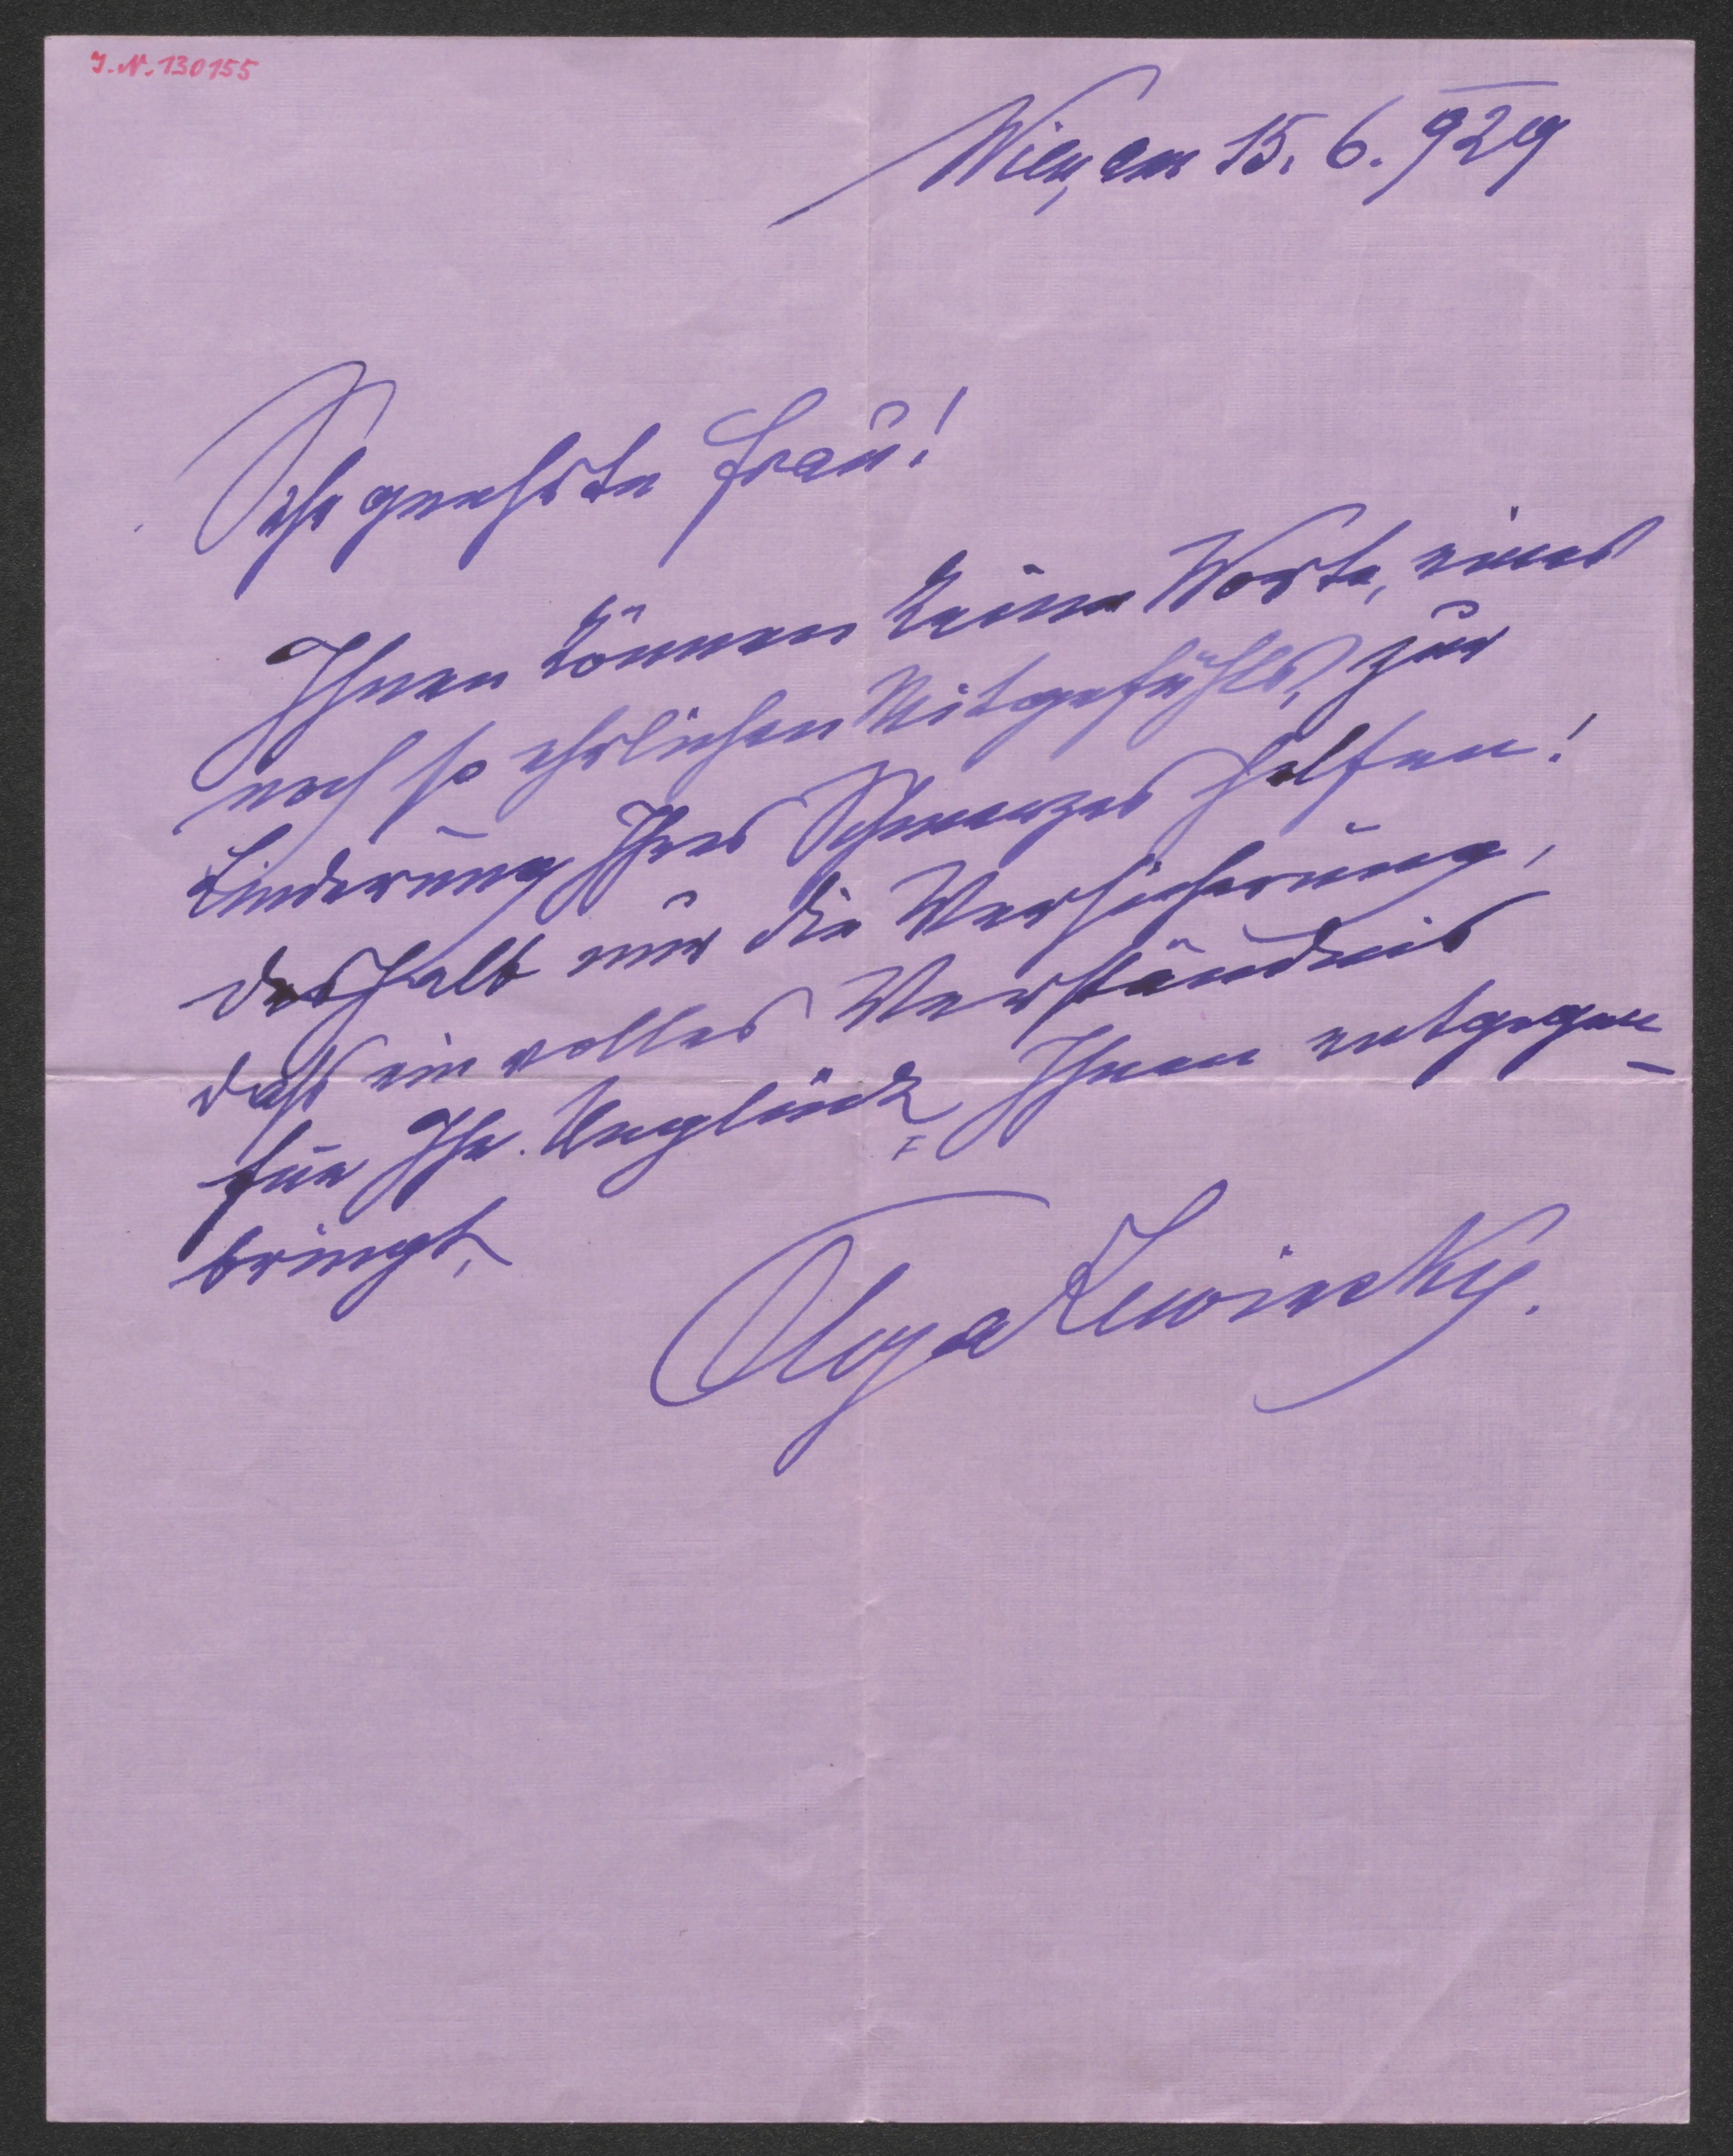 J.N. 130155
Wien, am 15. 6. 929
Sehr geehrte Frau!
Ihnen können keine Worte, eines
noch so ehrlichen Mitgefühls, zur
Linderung Ihres Schmerzes helfen!
deshalb nur die Versicherung,
daß ein volles Verständnis
für Ihr Unglück Ihnen entgegen-
bringt,
Olga Lewinsky.